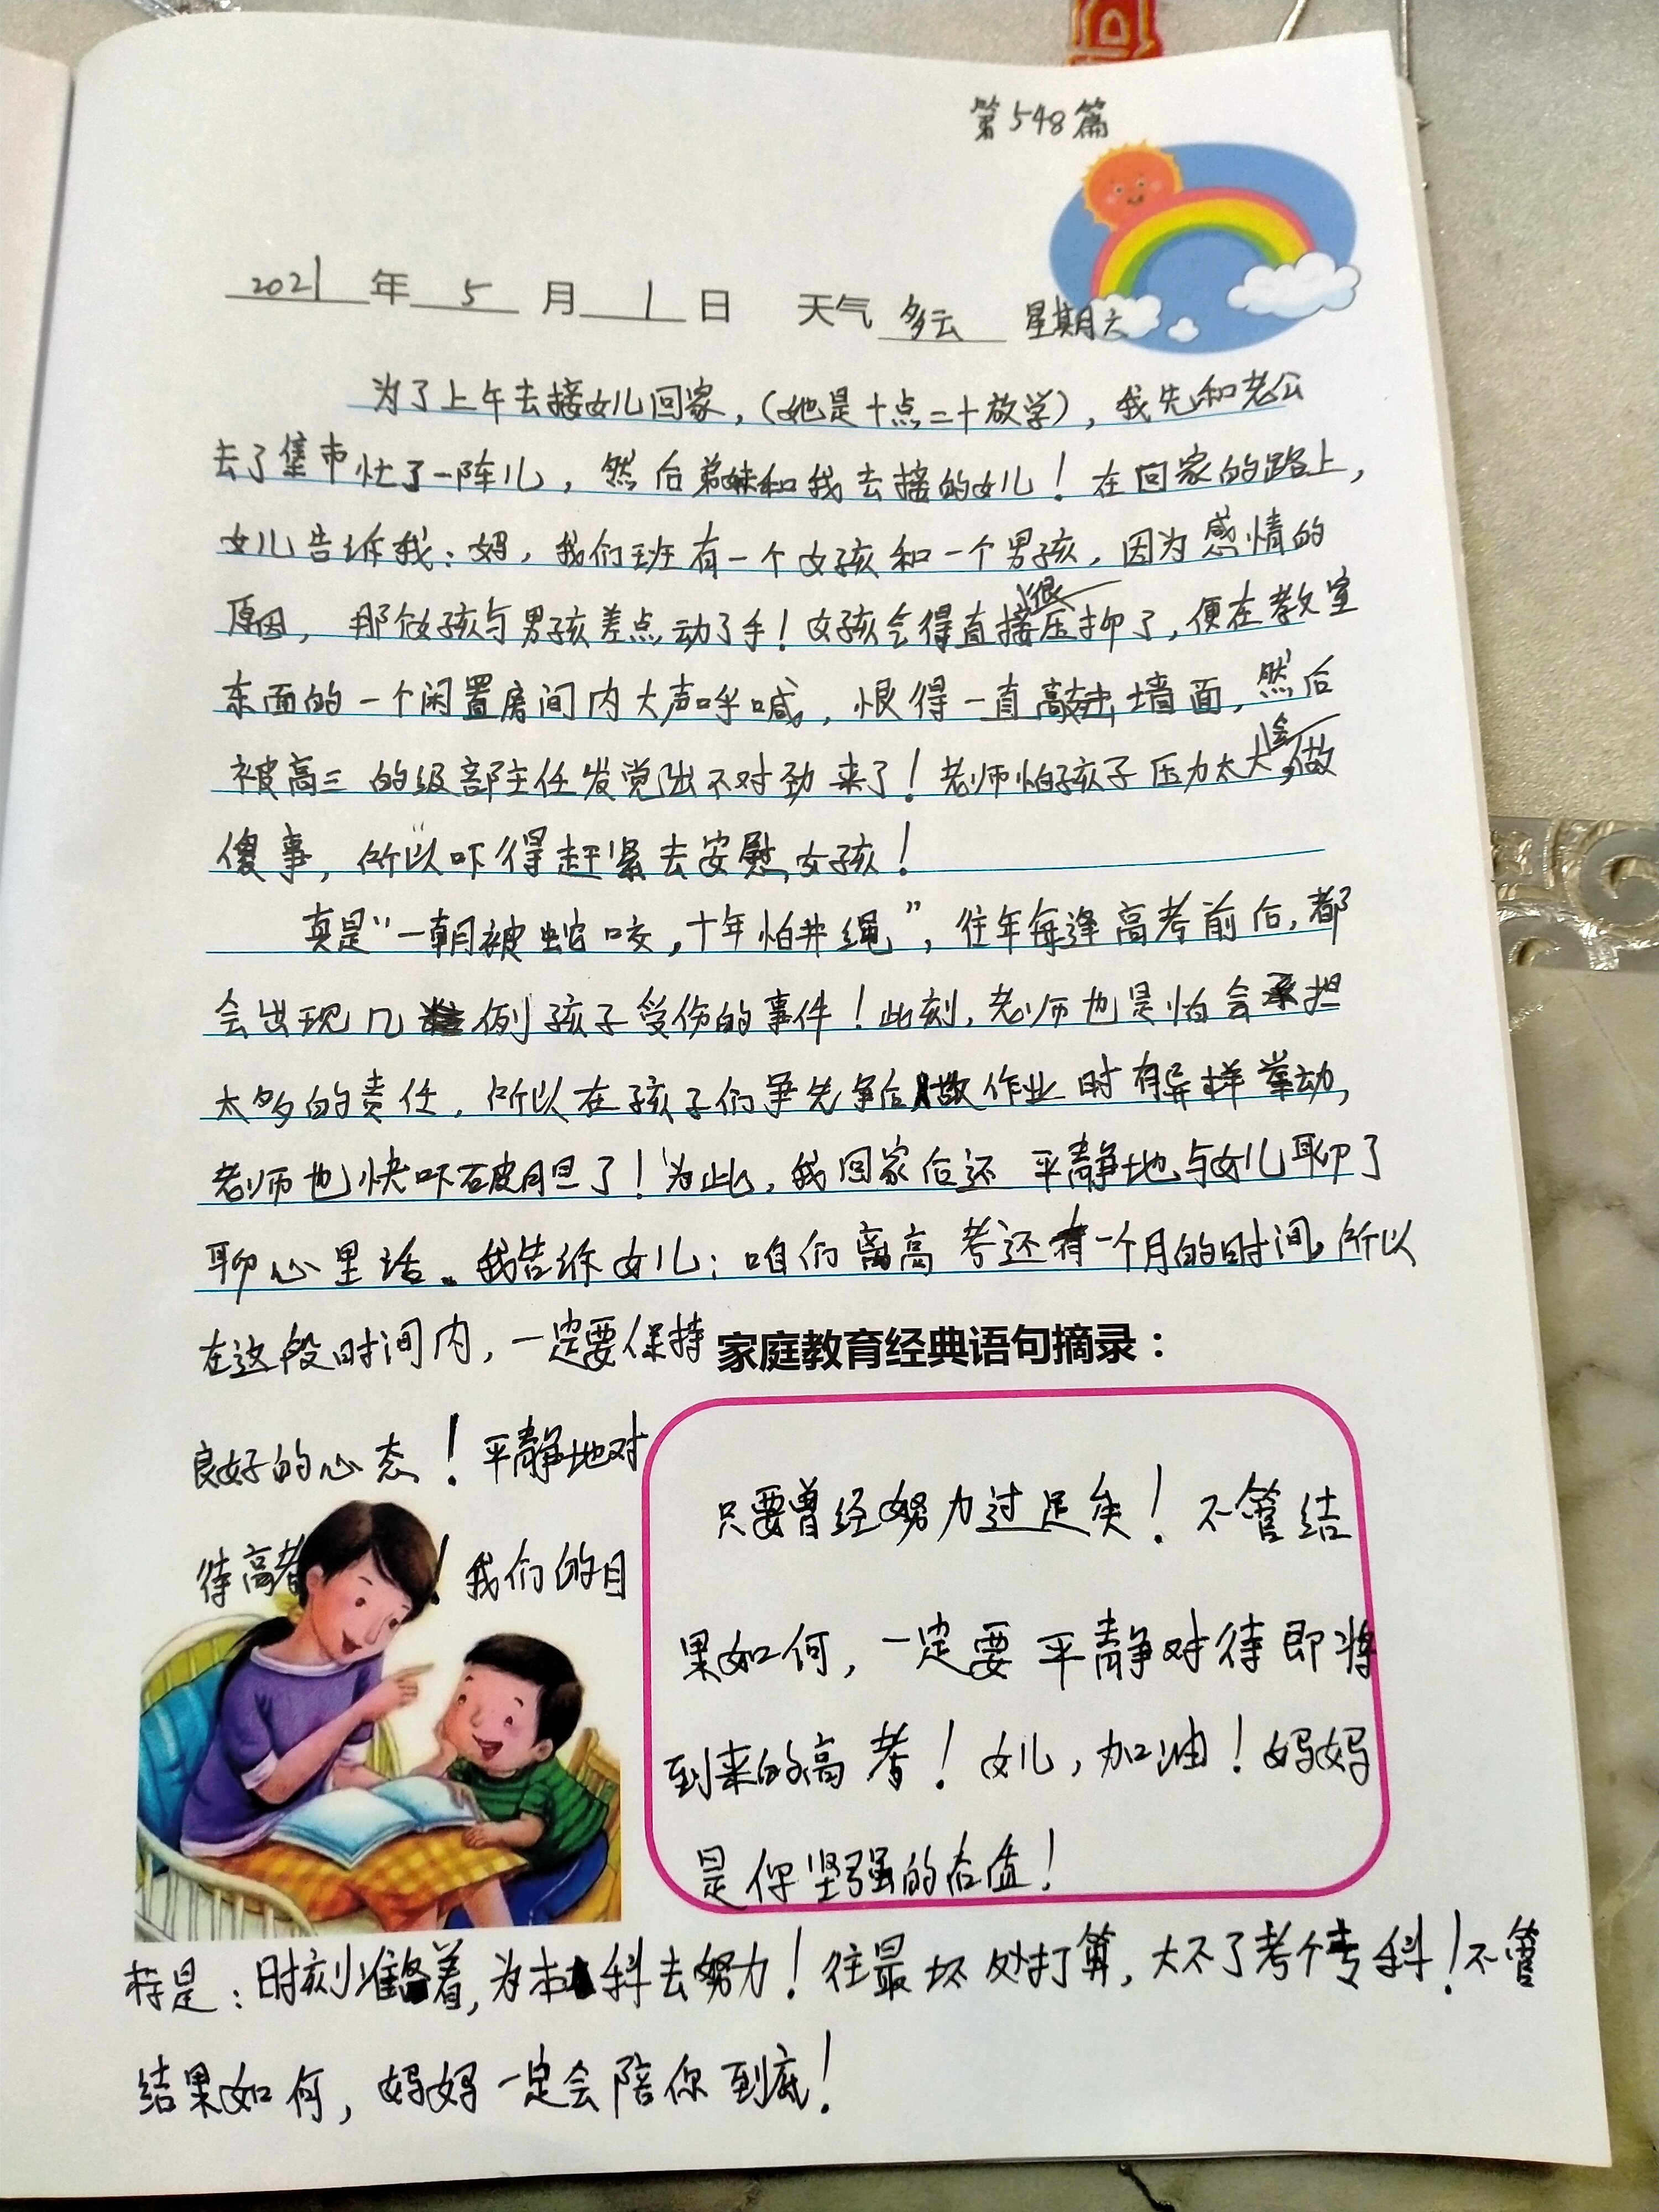 第548篇
2021年5月1日 天气多云 星期六
为了上午去接女儿回家，（她是十点二十放学），我先和老公
去了集市忙了一阵儿，然后弟妹和我去接的女儿！在回家的路上，
女儿告诉我：妈，我们班有一个女孩和一个男孩，因为感情的
原因，那个女孩与男孩差点动了手！女孩会得直接很压抑了，便在教室
东面的一个闲置房间内大声呼喊，恨得一直敲击墙面，然后
被高三的级部主任发觉出不对劲来了！老师怕孩子压力太大会做
傻事，所以吓得赶紧去安慰女孩！
真是“一朝被蛇咬，十年怕井绳”，往年每逢高考前后，都
会出现几例孩子受伤的事件！此刻，老师也是怕会承担
太多的责任，所以在孩子们争先争后做作业时有异样举动，
老师也快吓破胆了！为此，我回家后还平静地与女儿聊了
聊心里话。我告诉女儿：咱们离高考还有一个月的时间，所以
在这段时间内，一定要保持
良好的心态！平静地对
待高考！我们的目
家庭教育经典语句摘录：
只要曾经努力过足矣！不管结
果如何，一定要平静对待即将
到来的高考！女儿，加油！妈妈
是你坚强的后盾！
标是：时刻准备着，为本科去努力！往最坏处打算，大不了考个专科！不管
结果如何，妈妈一定会陪你到底！